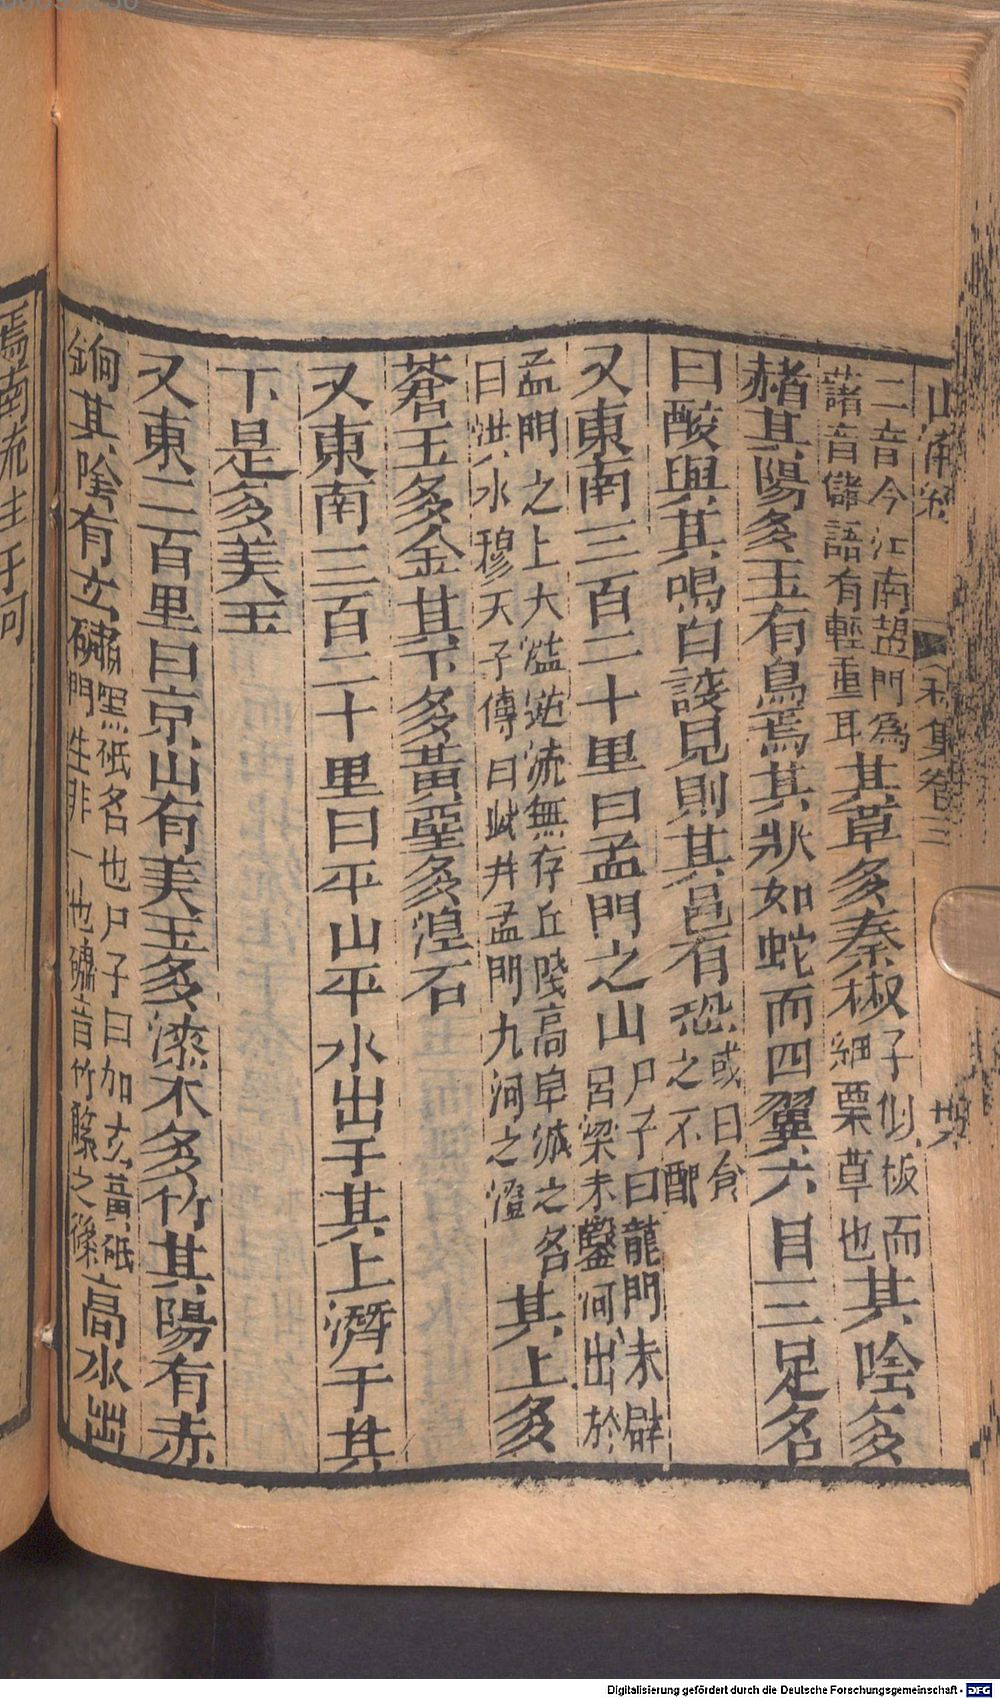 二音今江南䪥門為
藷音儲語有輕重耳其草多秦椒子似板而
細葉草也其陰多
赭其陽多玉有鳥焉其狀如蛇而四翼六目三足名
曰酸與其鳴自詨見則其邑有恐或曰食
之不醉
又東南三百二十里曰孟門之山尸子曰龍門未辟
呂梁未鑿河出於
孟門之上大溢逆流無存丘陵高阜滅之名
曰洪水穆天子傳曰此井孟門九河之隥其上多
蒼玉多金其下多黃堊多涅石
又東南三百二十里曰平山平水出于其上濳于其
下是多美玉
又東二百里曰京山有美玉多漆木多竹其陽有赤
銅其陰有玄䃤黑砥名也尸子曰加玄黃砥
門生非一也䃤音竹篠之篠高水出
焉南流注于河
卷三
Digitalisierung gefördert durch die Deutsche Forschungsgemeinschaft - DFG